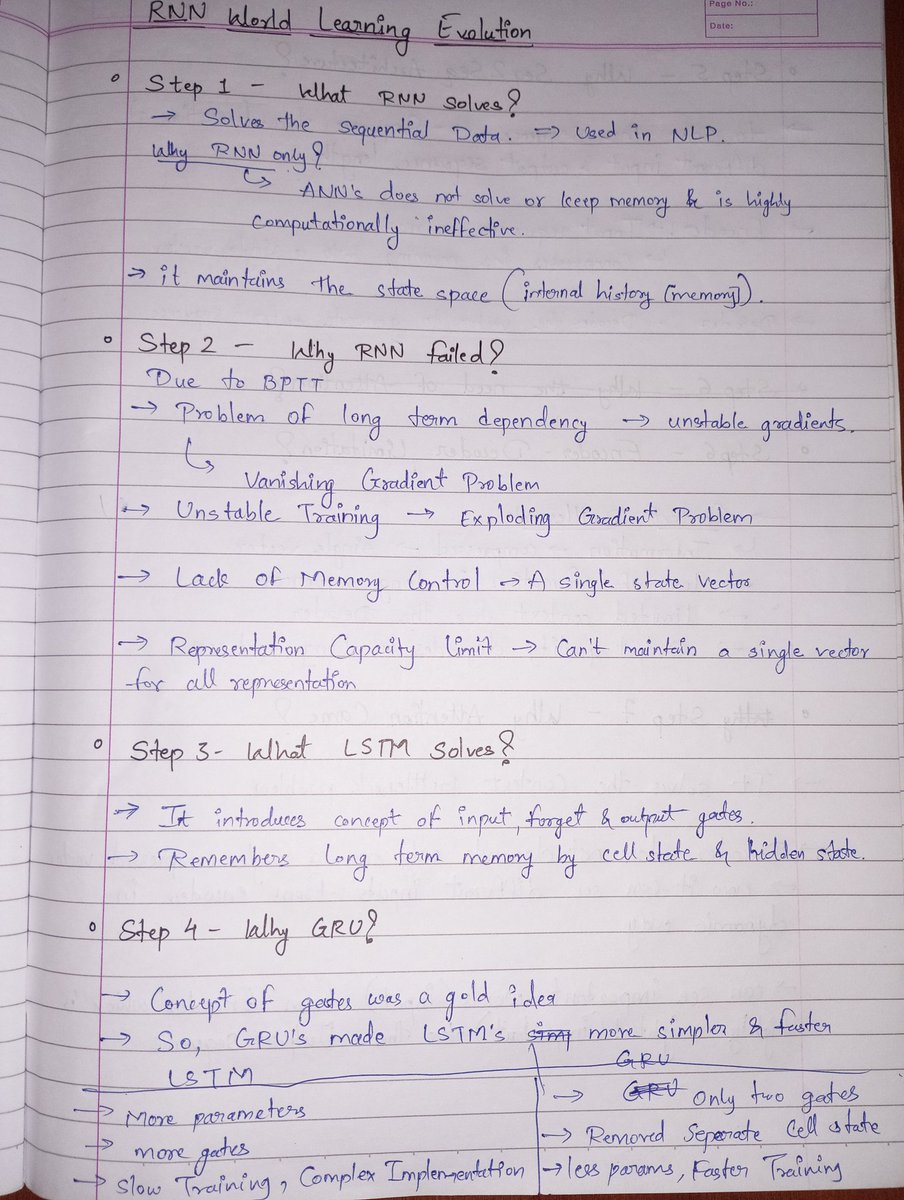 Page No.:
Date:
RNN World Learning Evolution
Step 1 - What RNN Solves?
→ Solves the Sequential Data. ⇒ Used in NLP.
Why RNN only?
↳ ANN's does not solve or keep memory & is highly
computationally ineffective.
→ it maintains the state space (internal history [memory]).
Step 2 - Why RNN failed?
Due to BPTT
→ Problem of long term dependency → unstable gradients.
↳ Vanishing Gradient Problem
→ Unstable Training → Exploding Gradient Problem
→ Lack of Memory Control → A single state vector
→ Representation Capacity limit → Can't maintain a single vector
for all representation
Step 3 - What LSTM Solves?
→ It introduces concept of input, forget & output gates.
→ Remembers long term memory by cell state & hidden state.
Step 4 - Why GRU?
→ Concept of gates was a gold idea
→ So, GRU's made LSTM's more simpler & faster
LSTM GRU
→ More parameters → Only two gates
→ more gates → Removed Seperate Cell state
→ Slow Training, Complex Implementation → less params, Faster Training